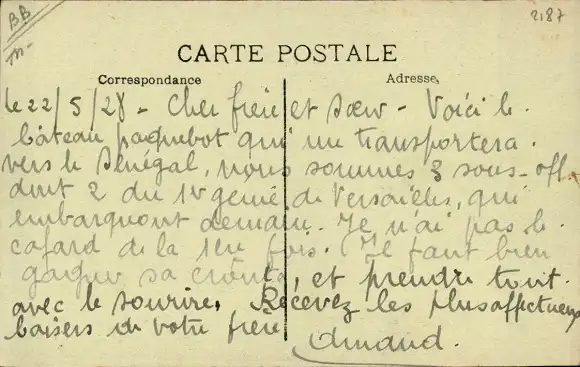 BB
m-
2187
CARTE POSTALE
Correspondance
Adresse
le 22/5/28 - Cher frère et sœur - Voici le
bâteau paquebot qui me transportera.
vers le Sénégal, nous sommes 3 sous-off.
dont 2 du 1er génie de Versailles, qui
embarquont demain. Je n'ai pas le
cafard de la 1ère fois. Il faut bien
gagner sa croûte, et prendre tout
avec le sourire. Recevez les plus affectueux
baisers de votre frère
Armand.